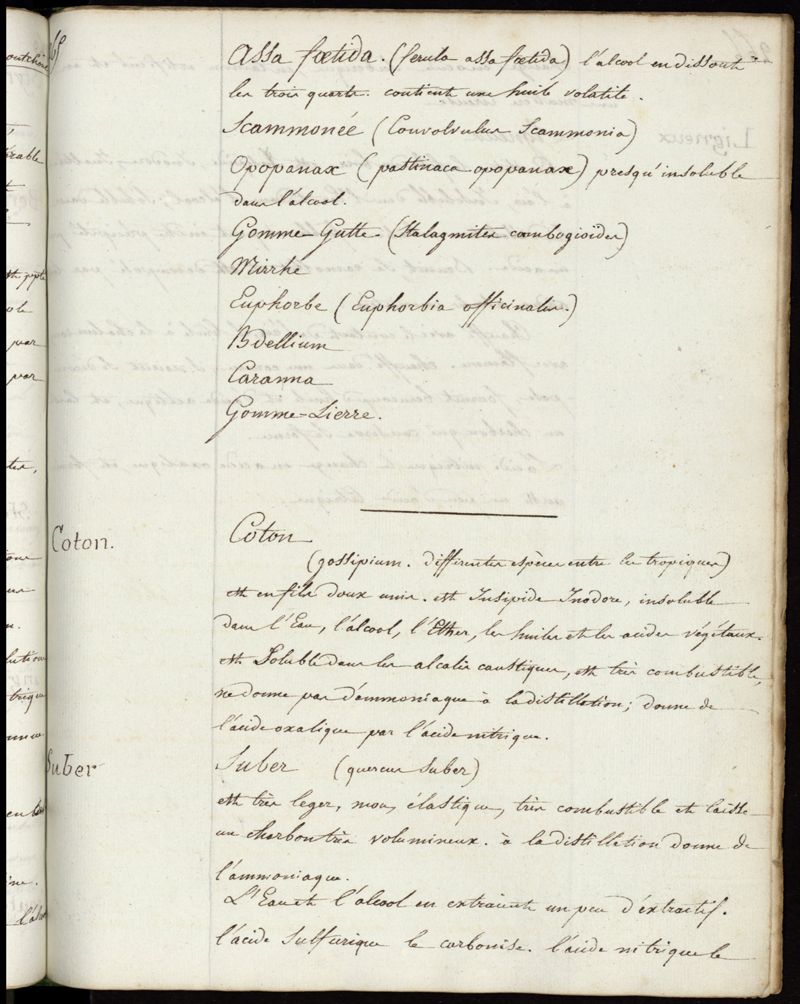 Assa fœtida. (ferula assa fœtida) l'alcool en dissout
les trois quarts. contient une huile volatile.
Scammonée (Convolvulus Scammonia)
Opopanax (pastinaca opopanax) presqu'insoluble
dans l'alcool.
Gomme-Gutte. (Stalagmites cambogioïdes)
Mirrhe
Euphorbe (Euphorbia officinalis.)
Bdellium
Caranna
Gomme-Lierre.
Coton.
Coton
(gossipium. differentes espèces entre les tropiques)
est en fils doux unis. est Insipide Inodore, insoluble
dans l'Eau, l'alcool, l'Ether, les huiles et les acides végétaux.
est Soluble dans les alcalis caustiques, est très combustible,
ne donne pas d'ammoniaque à la distillation; donne de
l'acide oxalique par l'acide nitrique.
Suber
Suber (quercus suber)
est très leger, mou, élastique, très combustible et laisse
un charbon très volumineux. à la distillation donne de
l'ammoniaque.
L'Eau et l'alcool en extraient un peu d'extractif.
l'acide Sulfurique le carbonise. l'acide nitrique le